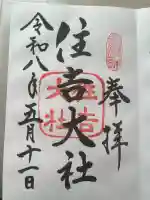 奉拝
住吉大社
令和八年五月十一日
住吉大社